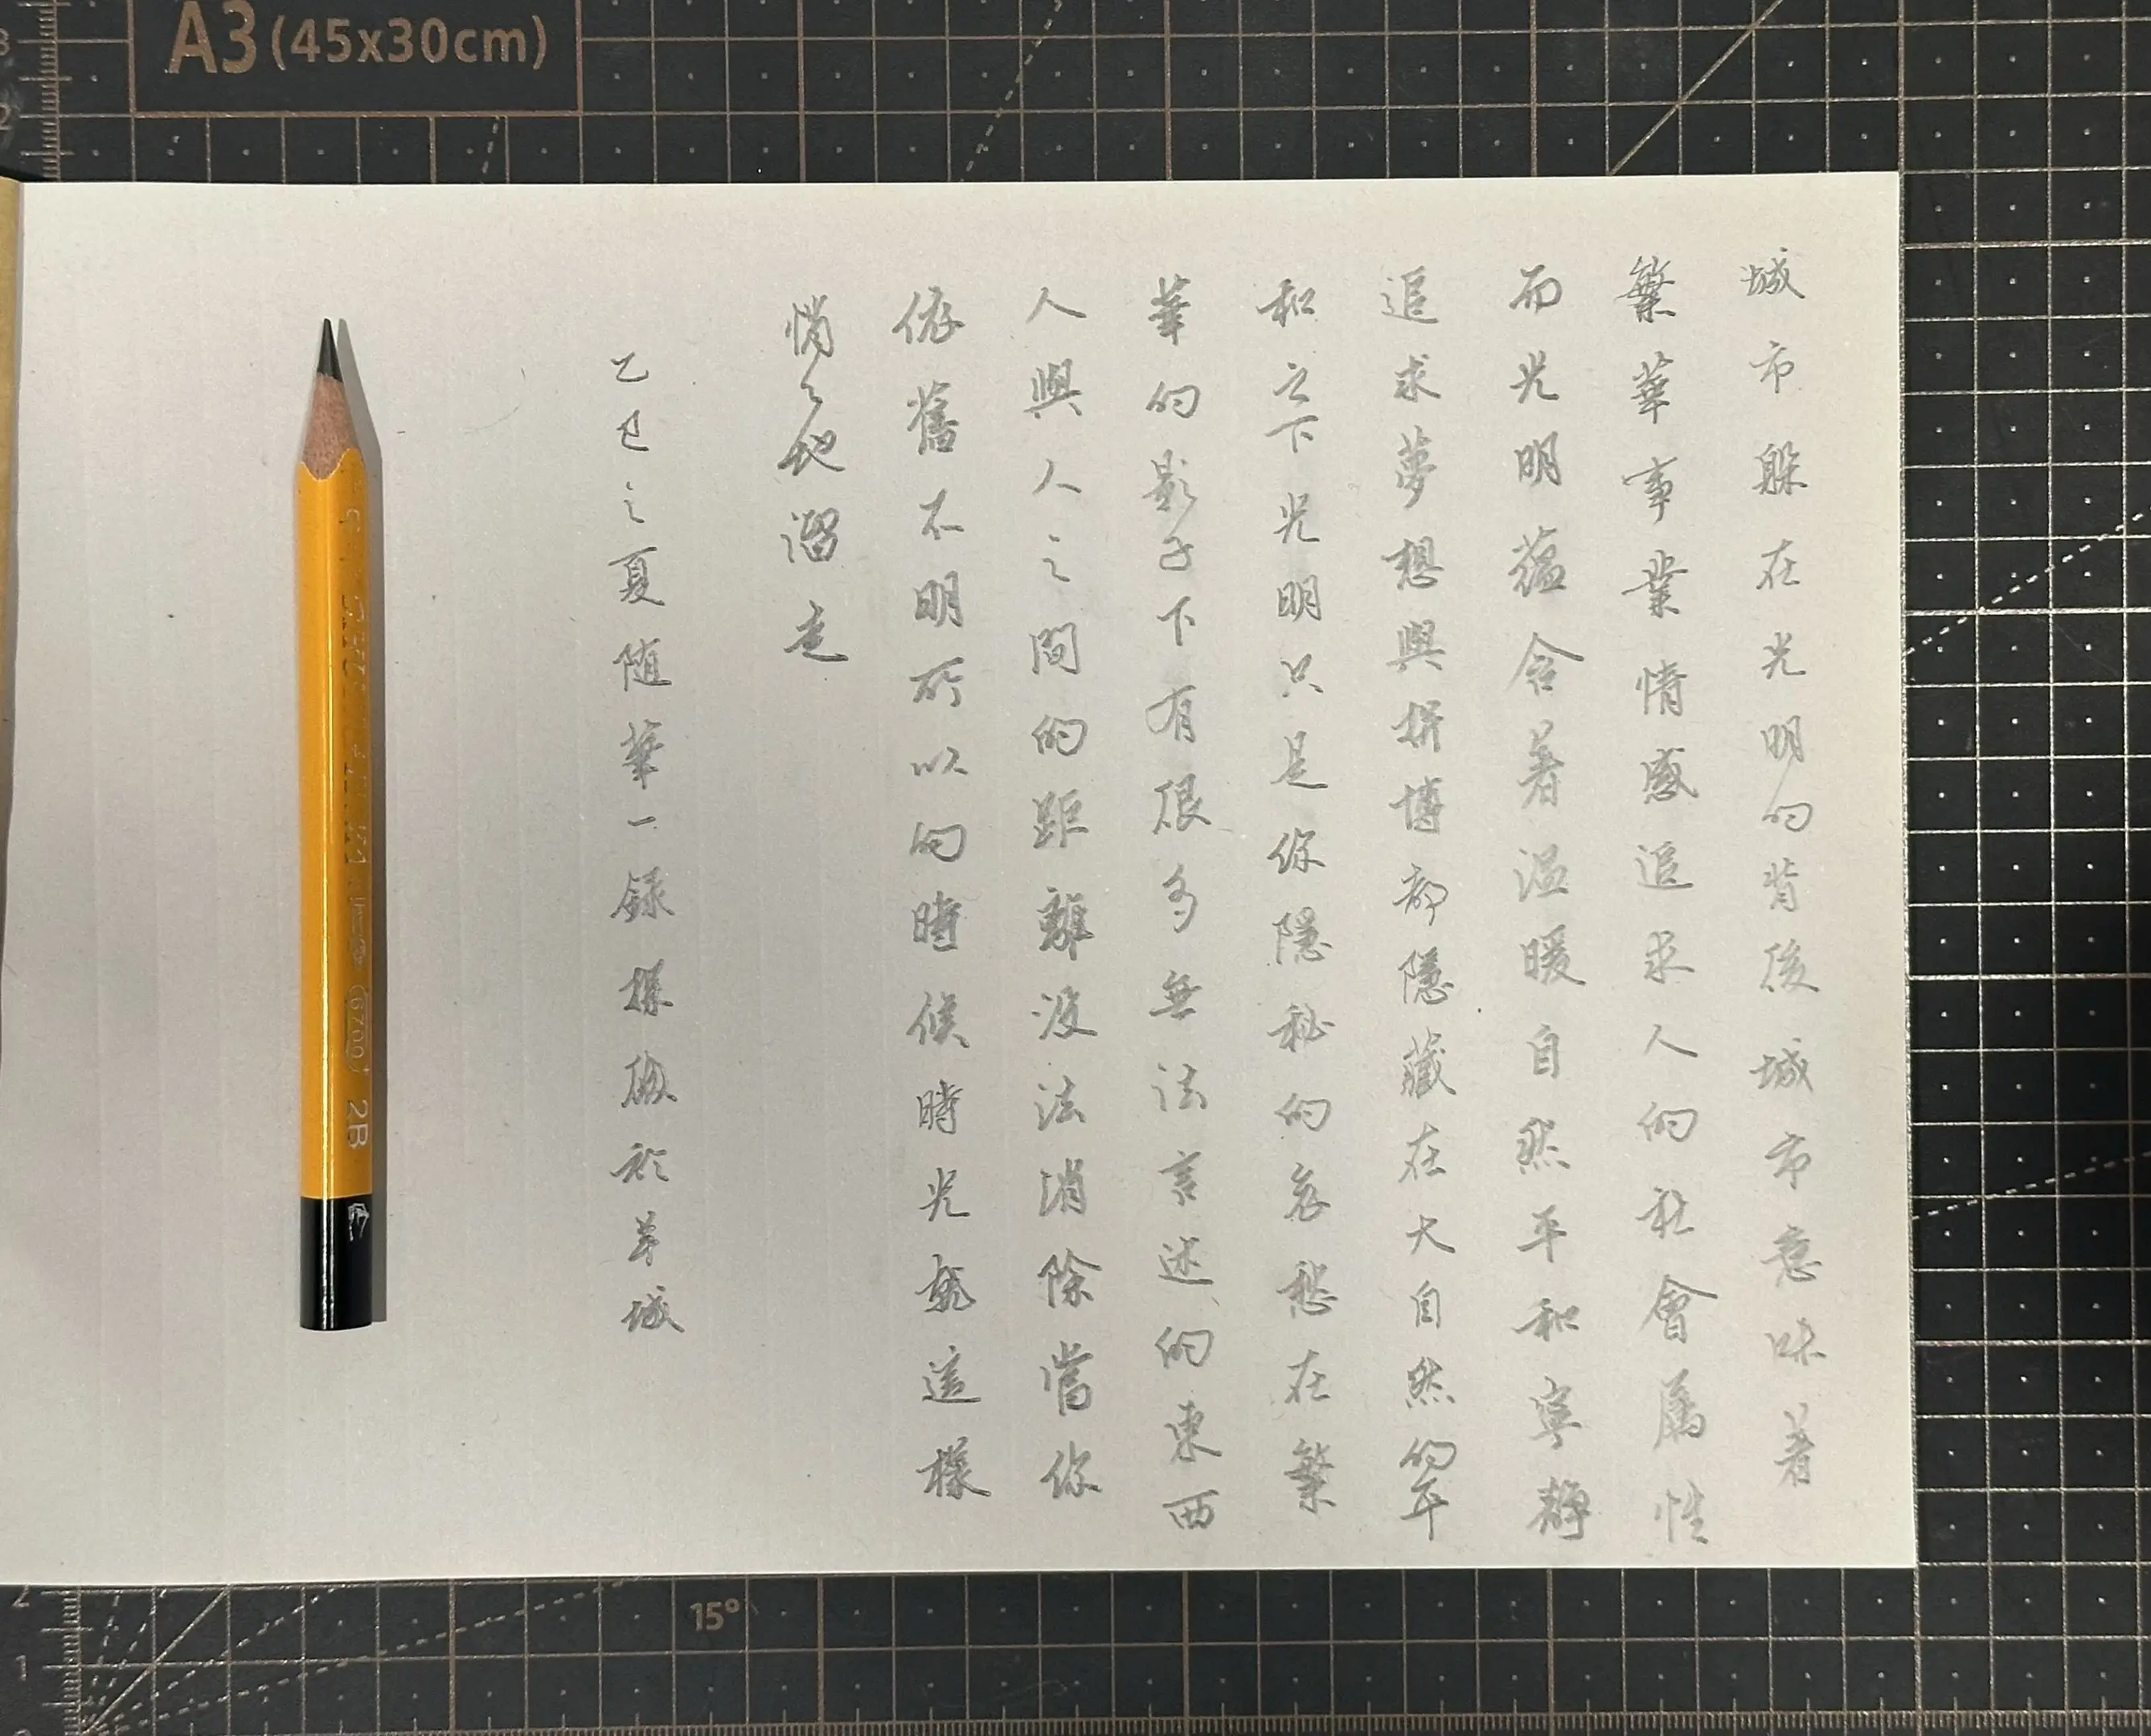 城市躲在光明的背後城市意味着
繁華事業情感追求人的社會屬性
而光明蘊含着溫暖自然平和寧靜
追求夢想與拼博都隱藏在大自然的平
和之下光明只是你隱秘的哀愁在繁
華的影子下有很多無法言述的東西
人與人之間的距離没法消除當你
依舊不明所以的時候時光就這樣
悄々地溜走
乙巳之夏随筆一錄 於羊城
A3(45x30cm)
15°
(6700) 2B
3
2
2
1